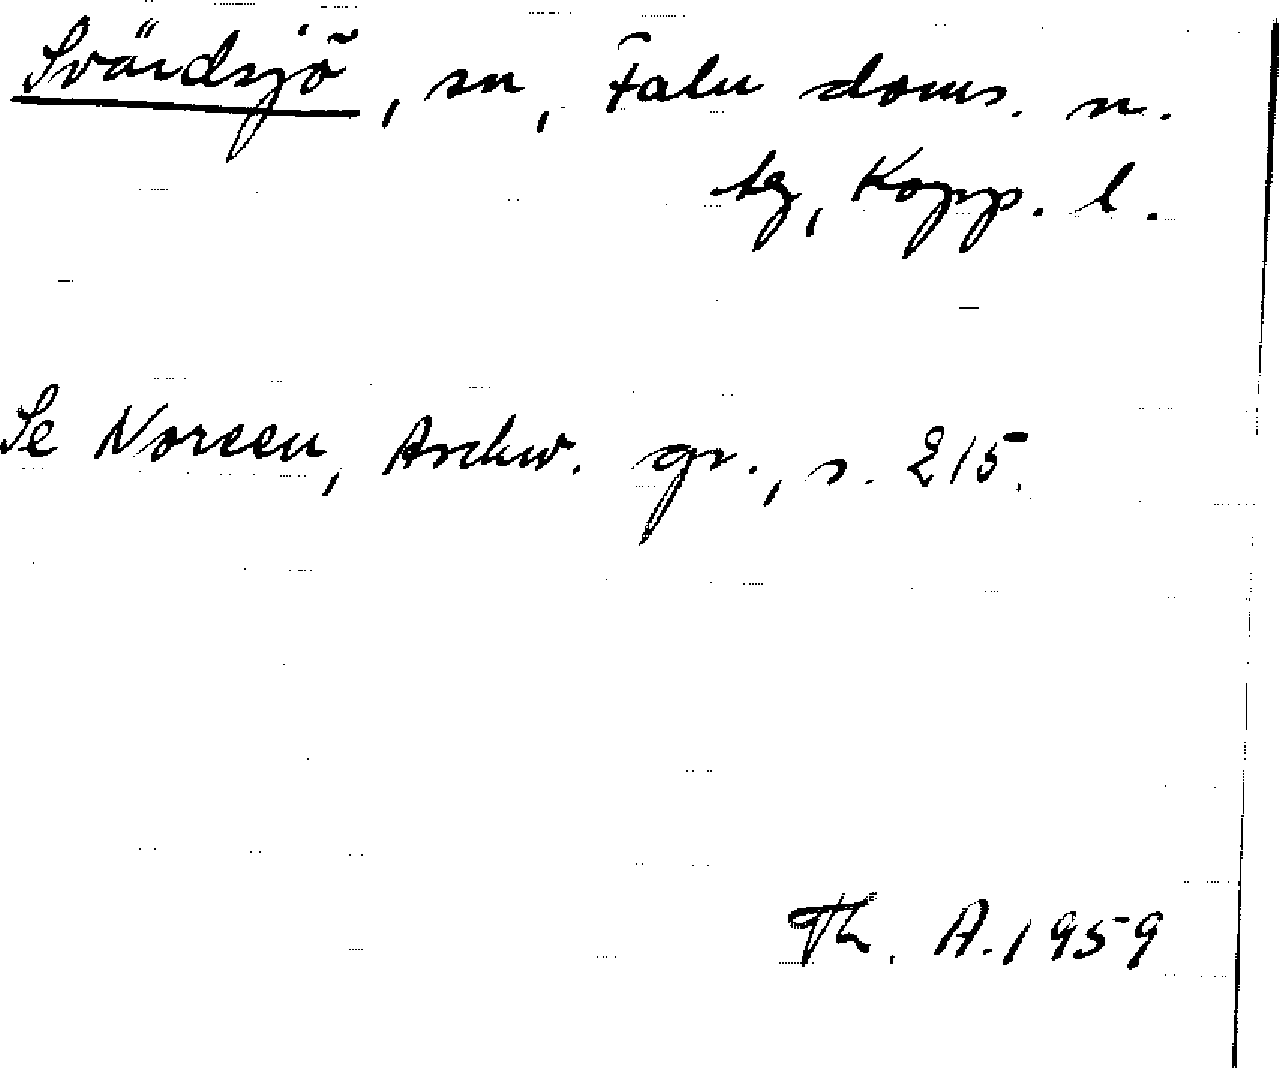 Svärdsjö, sn, Falu doms. n.
tg, Kopp. l.
Se Noreen, Arkiv. gr., s. 215.
Th. A. 1959